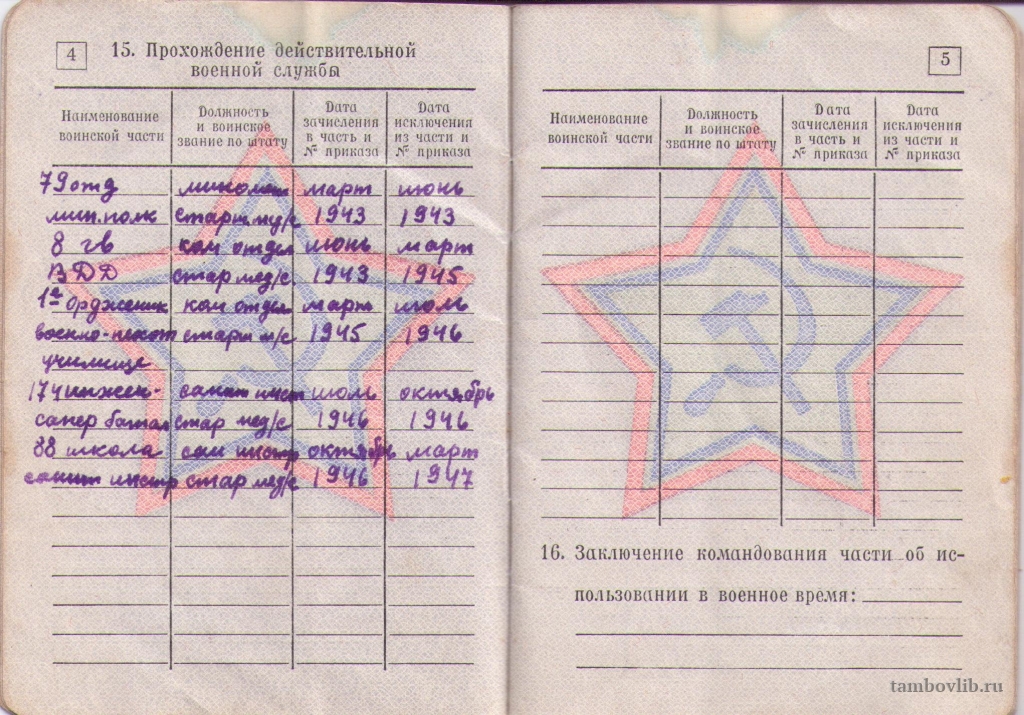 4
15. Прохождение действительной
военной службы
Наименование воинской части
Должность и воинское звание по штату
Дата зачисления в часть и № приказа
Дата исключения из части и № приказа
79 отд миномет март июнь
мин. полк старш. м/с 1943 1943
8 гв ком отдел июнь март
ВДД стар мед/с 1943 1945
1ое орджоник ком отдел март июль
военно-пехот старш м/с 1945 1946
училище
174 инжен- санит инст июль октябрь
сапер батал стар мед/с 1946 1946
88 школа сан инстр октябрь март
санит инстр стар мед/с 1946 1947
5
Наименование воинской части
Должность и воинское звание по штату
Дата зачисления в часть и № приказа
Дата исключения из части и № приказа
16. Заключение командования части об ис-
пользовании в военное время:
tambovlib.ru